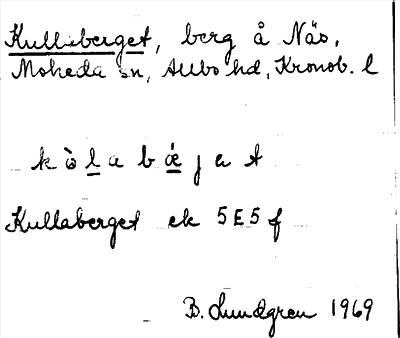 Kullaberget, berg å Näs,
Moheda sn, Allbo hd, Kronob. l
kòlabǽjat
Kullaberget ek 5E5f
B. Lundgren 1969